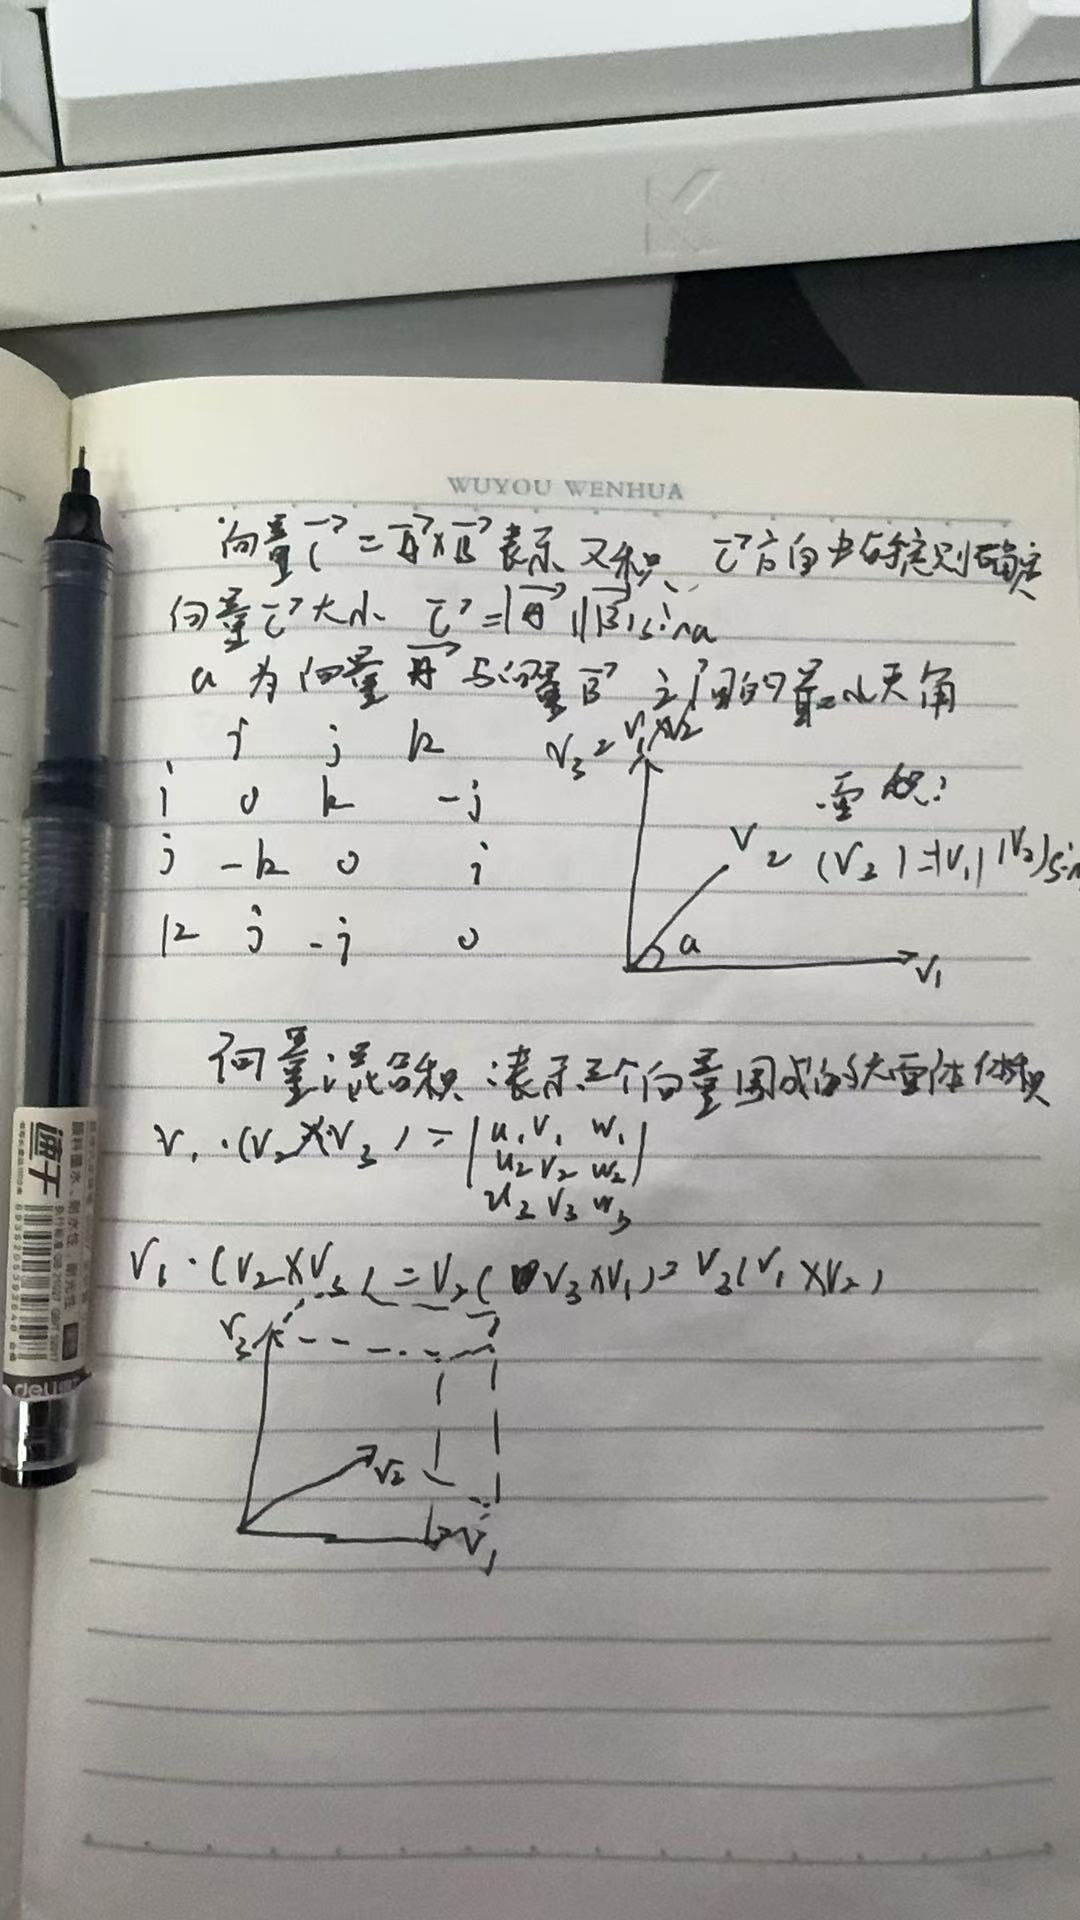 WUYOU WENHUA
向量C⃗ = A⃗×B⃗ 表示叉积 C⃗方向由右手定则确定
向量C⃗大小 C⃗=|A⃗||B⃗|sina
a 为向量A⃗与向量B⃗之间的最小夹角
i j k
i 0 k -j
j -k 0 i
k j -i 0
V3 = V1×V2
面积:
V2 (V3)=|V1||V2|sin
a
V1
向量混合积:表示三个向量围成的 面体体积
V1·(V2×V3)=|u1 V1 w1|
u2 V2 w2
u3 V3 w3
V1·(V2×V3)=V2(V3×V1)=V3(V1×V2)
V3
V2
V1
deli